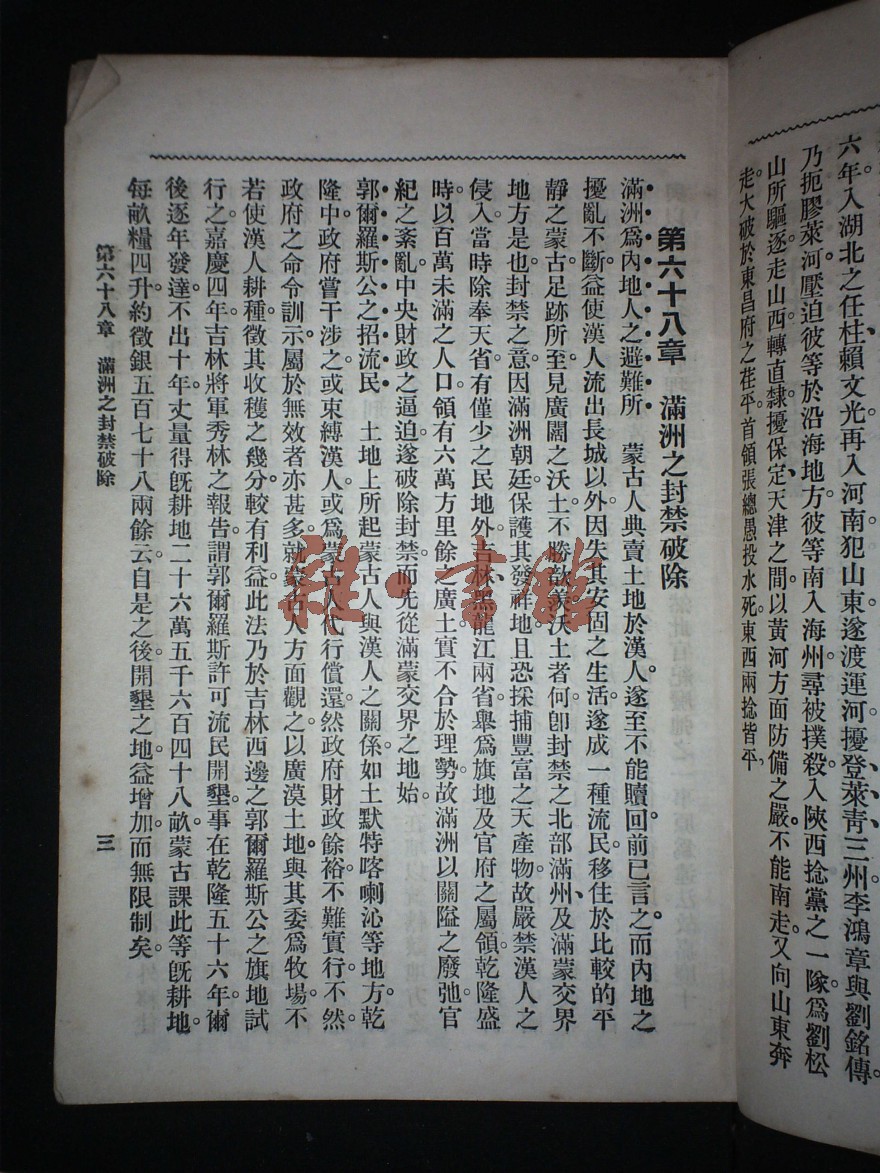 六年入湖北之任柱賴文光再入河南犯山東遂渡運河擾登萊青三州李鴻章與劉銘傳
乃扼膠萊河壓迫彼等於沿海地方彼等南入海州尋被撲殺入陝西捻黨之一隊爲劉松
山所驅逐走山西轉直隸擾保定天津之間以黃河方面防備之嚴不能南走又向山東奔
走大破於東昌府之茌平首領張總愚投水死東西兩捻皆平
第六十八章 滿洲之封禁破除
滿洲爲內地人之避難所 蒙古人典賣土地於漢人遂至不能贖回前已言之而內地之
擾亂不斷益使漢人流出長城以外因失其安固之生活遂成一種流民移住於比較的平
靜之蒙古足跡所至見廣闊之沃土不勝欲羨沃土者何卽封禁之北部滿州及滿蒙交界
地方是也封禁之意因滿洲朝廷保護其發祥地且恐採捕豐富之天產物故嚴禁漢人之
侵入當時除奉天省有僅少之民地外吉林黑龍江兩省舉爲旗地及官府之屬領乾隆盛
時以百萬未滿之人口領有六萬方里餘之廣土實不合於理勢故滿洲以關隘之廢弛官
紀之紊亂中央財政之逼迫遂破除封禁而先從滿蒙交界之地始
郭爾羅斯公之招流民 土地上所起蒙古人與漢人之關係如土默特喀喇沁等地方乾
隆中政府嘗干涉之或束縛漢人或爲蒙古人代行償還然政府財政餘裕不難實行不然
政府之命令訓示屬於無效者亦甚多就蒙古人方面觀之以廣漠土地與其委爲牧場不
若使漢人耕種徵其收穫之幾分較有利益此法乃於吉林西邊之郭爾羅斯公之旗地試
行之嘉慶四年吉林將軍秀林之報告謂郭爾羅斯許可流民開墾事在乾隆五十六年爾
後逐年發達不出十年丈量得旣耕地二十六萬五千六百四十八畝蒙古課此等旣耕地
每畝糧四升約徵銀五百七十八兩餘云自是之後開墾之地益增加而無限制矣
第六十八章 滿洲之封禁破除
三
雜·書館